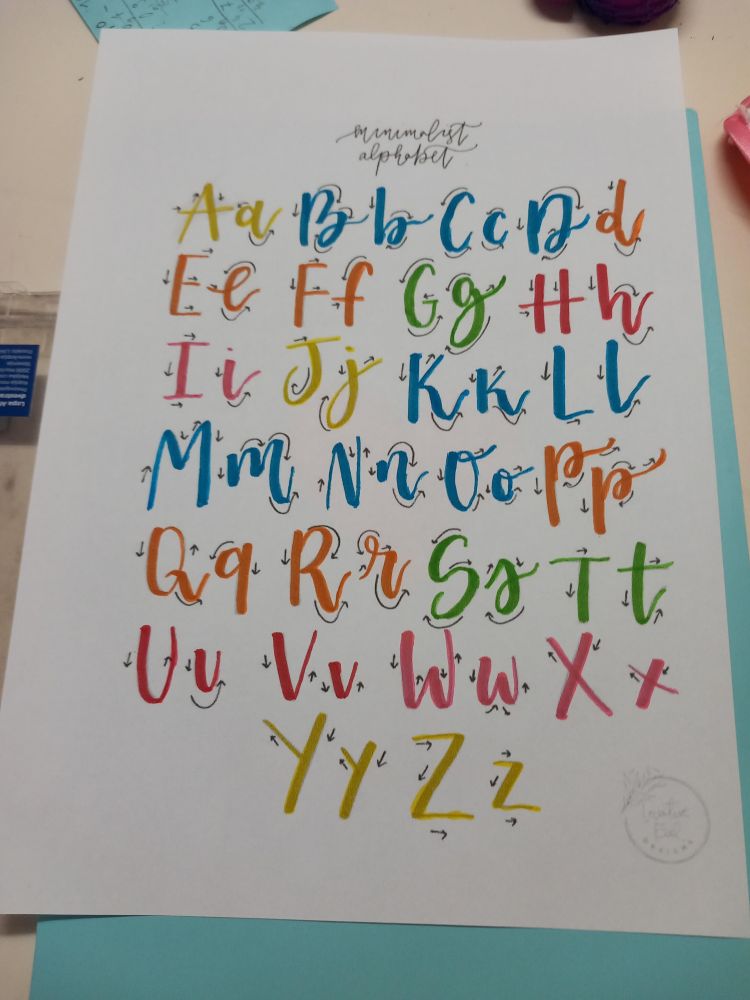 minimalist
alphabet
Aa Bb Cc Dd
Ee Ff Gg Hh
Ii Jj Kk Ll
Mm Nn Oo Pp
Qq Rr Ss Tt
Uu Vv Ww Xx
Yy Zz
Creative
DESIGNS